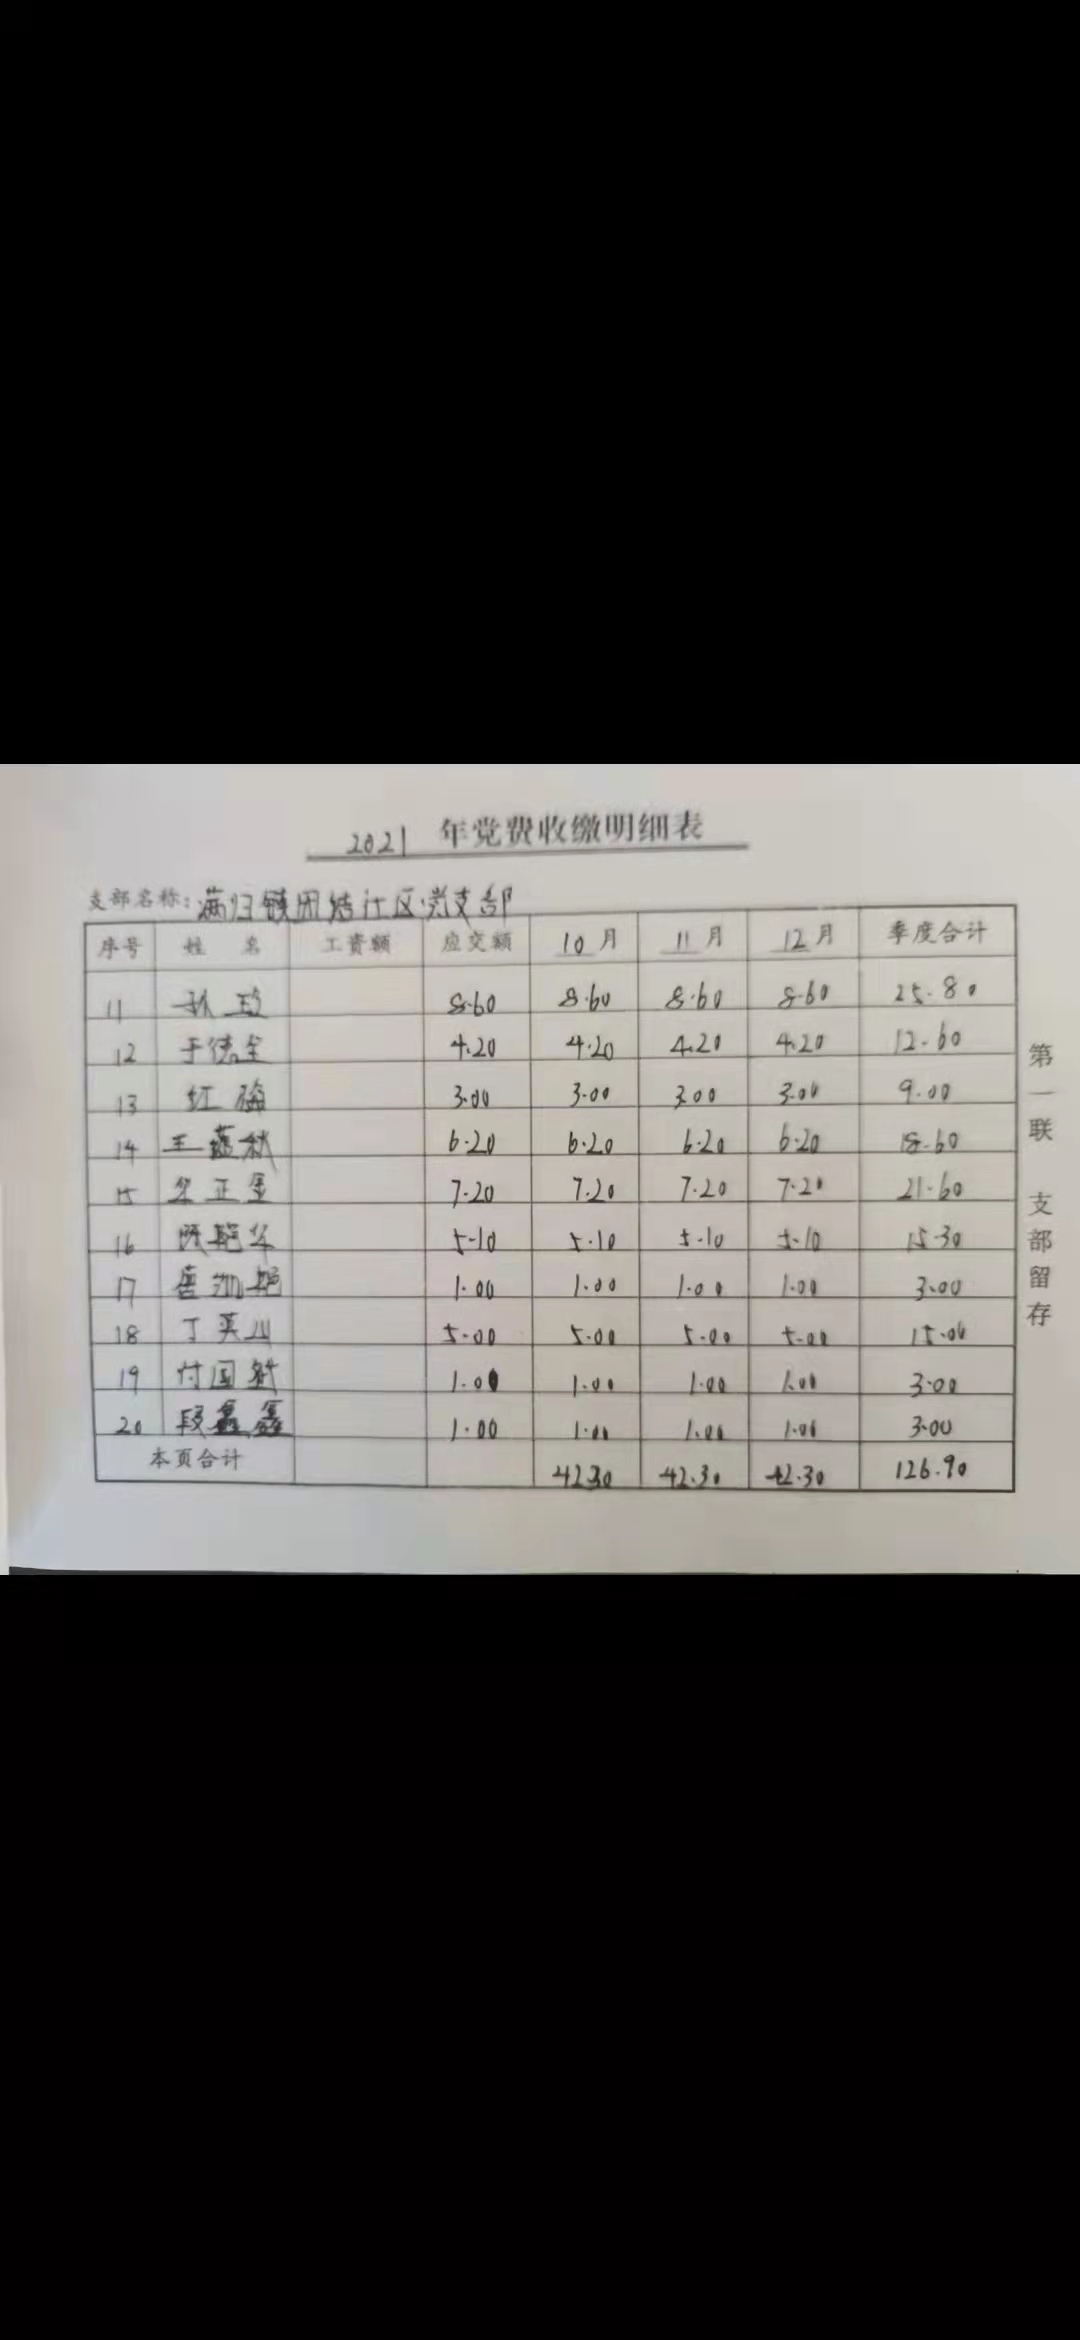 2021 年党费收缴明细表
支部名称：满归镇团结社区党支部
序号 姓 名 工资额 应交额 10月 11月 12月 季度合计
11 8.60 8.60 8.60 8.60 25.80
12 于德全 4.20 4.20 4.20 4.20 12.60
13 红 3.00 3.00 3.00 3.00 9.00
14 王 秋 6.20 6.20 6.20 6.20 18.60
15 正 7.20 7.20 7.20 7.20 21.60
16 陈艳华 5.10 5.10 5.10 5.10 15.30
17 1.00 1.00 1.00 1.00 3.00
18 丁英山 5.00 5.00 5.00 5.00 15.00
19 付国 1.00 1.00 1.00 1.00 3.00
20 段鑫鑫 1.00 1.00 1.00 1.00 3.00
本页合计 42.30 42.30 42.30 126.90
第一联 支部留存